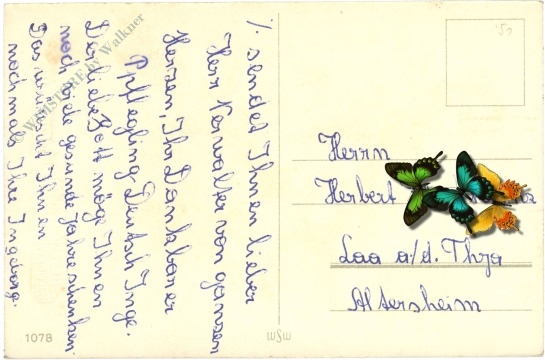 % sendet Ihnen lieber
Herr Verwalter von ganzen
Herzen, Ihr Dankbarer
Ppflegling Deutsch Inge.
Der liebe Gott möge Ihnen
noch viele gesunde Jahre schenken.
Das wünscht Ihnen
nochmals Ihre Ingeborg.
Herrn
Herbert
Laa a/d. Thya
Altersheim
1078
WSW
by Walkner